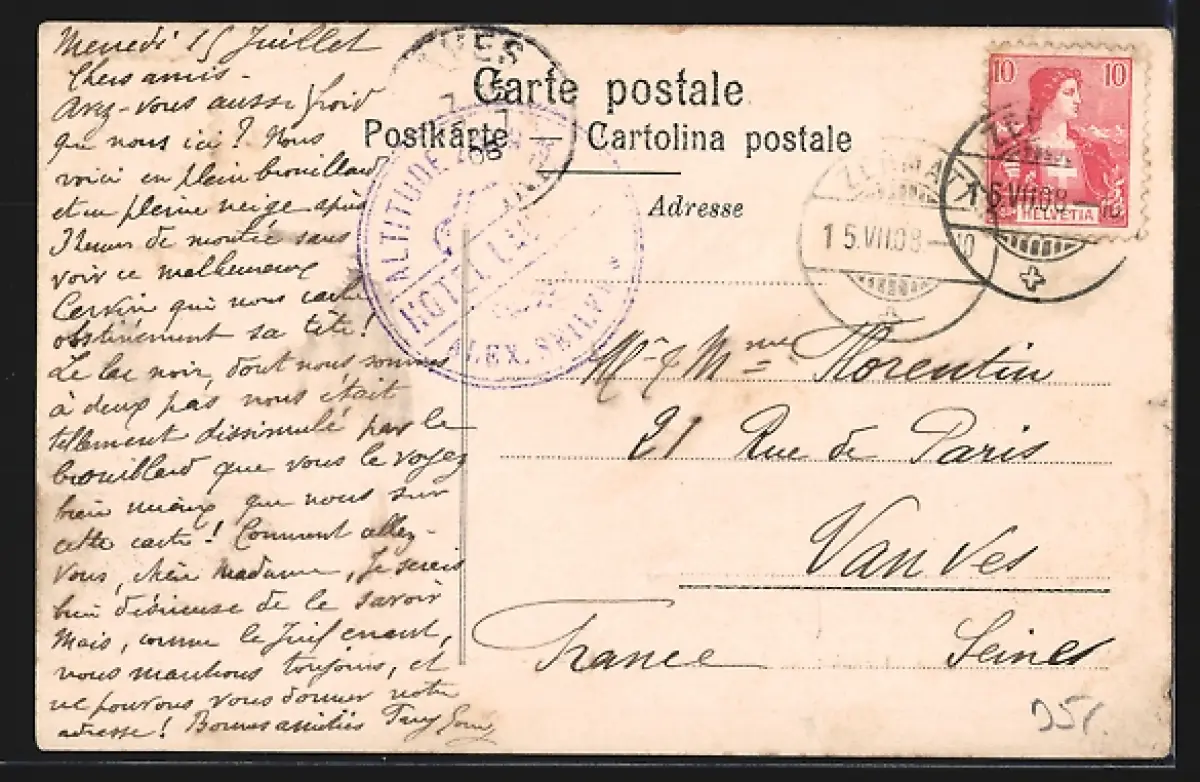 Mercredi 15 Juillet
Chers amis -
Avez-vous aussi froid
que nous ici ? Nous
voici en plein brouillard
et en pleine neige après
3 heures de montée sans
voir ce malheureux
Cervin qui nous cache
obstinément sa tête !
Le lac noir, dont nous sommes
à deux pas nous était
tellement dissimulé par le
brouillard que vous le voyez
bien mieux que nous sur
cette carte ! Comment allez-
vous, chère Madame, Je serais
bien désireuse de le savoir
Mais, comme le Juif errant,
nous marchons toujours, et
ne pouvons vous donner notre
adresse ! Bonnes amitiés
Carte postale
Postkarte — Cartolina postale
Adresse
ALTITUDE
ALEX. SEILER
ZERMATT
15.VII.08.-10
ZERMATT
15.VII.08-10
10 10
HELVETIA
Mr & Mme Florentin
21 Rue de Paris
Vanves
France Seine